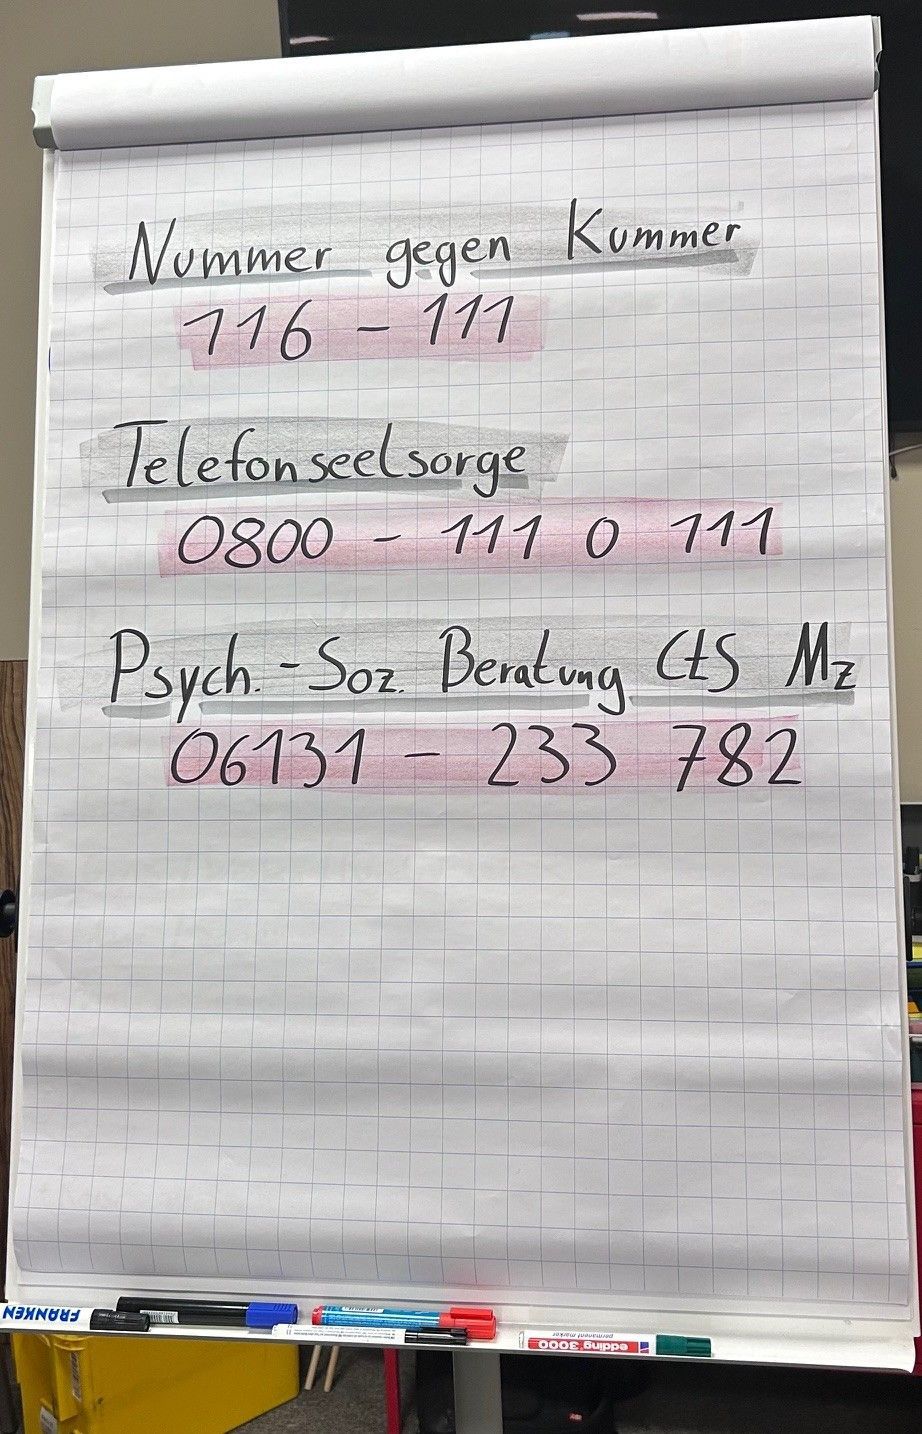 Nummer gegen Kummer
116 - 111
Telefonseelsorge
0800 - 111 0 111
Psych.-Soz. Beratung CtS Mz
06131 - 233 782
FRANKEN
edding 3000
permanent marker